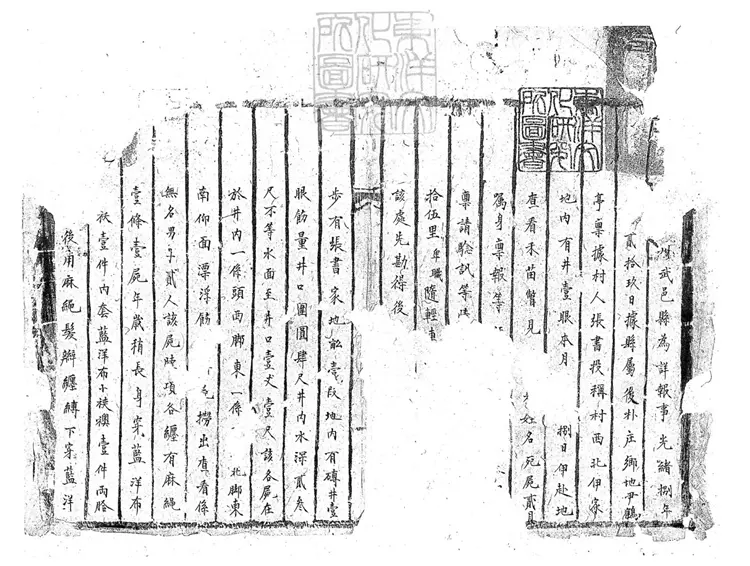 東洋文化研究所圖書
東洋文化研究所圖書
武邑縣為詳報事光緒捌年
貳拾玖日據縣屬後朴庄鄉地尹鶴
亭稟據村人張書投稱村西北伊家
地內有井壹眼本月 捌日伊赴地
查看禾苗瞥見 姓名死屍貳
屬身稟報等
稟請驗訊等
拾伍里卑職隨輕
該處先勘得後
步有張書家地畝壹段地內有磚井壹
眼飭量井口圍圓肆尺井內水深貳叁
尺不等水面至井口壹丈壹尺該各屍在
於井內一係頭西脚東一係 北脚東
南仰面漂浮飭 撈出查看係
無名男子貳人該屍咽項各纏有麻繩
壹條壹屍年歲稍長身穿藍洋布
袄壹件內套藍洋布小袄襖壹件兩胳
後用麻繩髮辮纏縛下穿藍洋